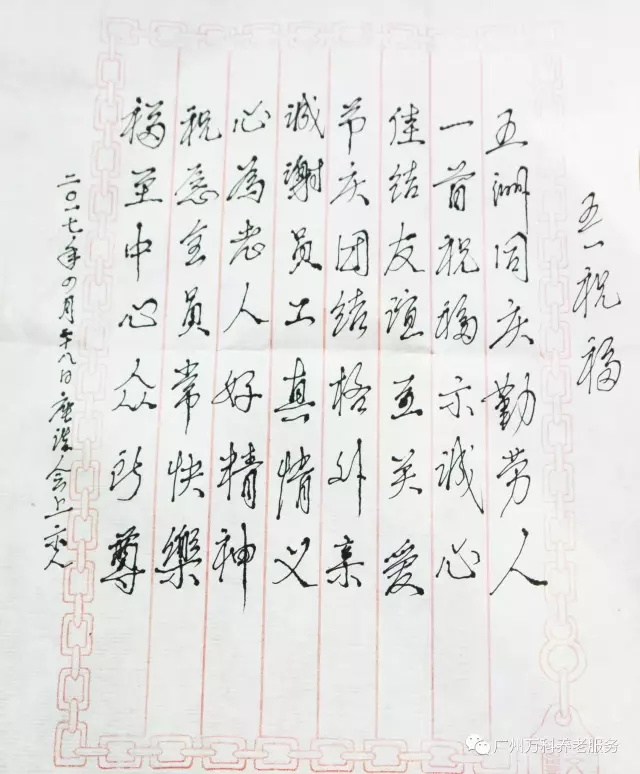 五一祝福
五洲同庆勤劳人
一首祝福示诚心
佳结友谊互关爱
节庆团结格外亲
诚谢员工真情义
心为老人好精神
祝愿全员常快乐
福至中心众所尊
二〇一七年四月二十八日座谈会上
广州万科养老服务